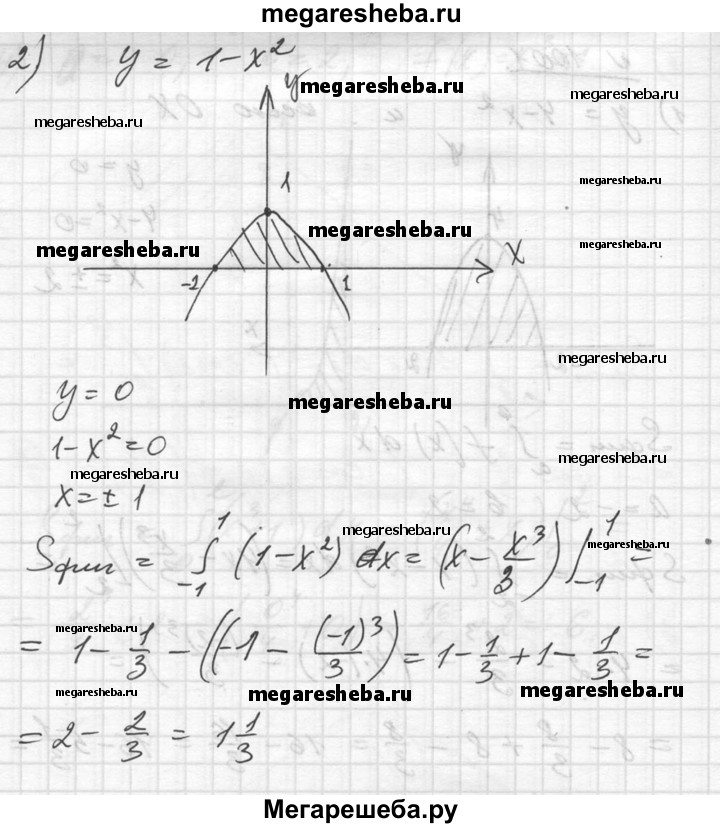 megaresheba.ru
2) y = 1 - x²
y
megaresheba.ru
megaresheba.ru
megaresheba.ru
1
megaresheba.ru
megaresheba.ru
megaresheba.ru
megaresheba.ru
-1 1 X
megaresheba.ru
y = 0
megaresheba.ru
1 - x² = 0
megaresheba.ru
megaresheba.ru
x = ± 1
megaresheba.ru
Sфиг = ∫₋₁¹ (1 - x²) dx = (x - x³/3) |₋₁¹ =
megaresheba.ru
megaresheba.ru
= 1 - 1/3 - ((-1 - (-1)³/3) = 1 - 1/3 + 1 - 1/3 =
megaresheba.ru
megaresheba.ru
megaresheba.ru
= 2 - 2/3 = 1 1/3
Мегарешеба.ру